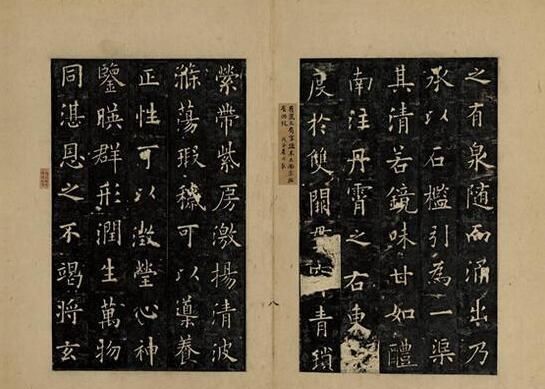 之有泉隨而涌出乃
承以石檻引為一渠
其清若鏡味甘如醴
南注丹霄之右東
度於雙闕青瑣
八
縈帶紫房激揚清波
滌蕩瑕穢可以導養
正性可以澂瑩心神
鑒暎群形潤生萬物
同湛恩之不竭將玄